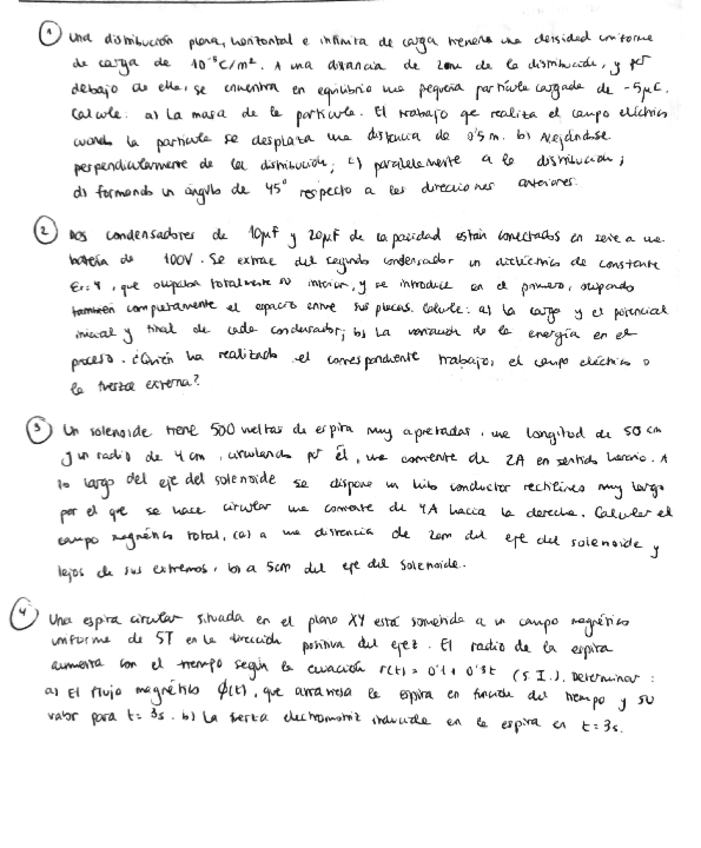 1 Una distribución plana, horizontal e infinita de carga tiene una densidad uniforme
de carga de 10⁻⁵ C/m². A una distancia de 20m de la distribución, y por
debajo de ella, se encuentra en equilibrio una pequeña partícula cargada de -5μC.
Calcule: a) La masa de la partícula. El trabajo que realiza el campo eléctrico
cuando la partícula se desplaza una distancia de 0'5m. b) Alejándose
perpendicularmente de la distribución; c) paralelamente a la distribución;
d) formando un ángulo de 45° respecto a las direcciones anteriores.
2 Dos condensadores de 10μF y 20μF de capacidad están conectados en serie a una
batería de 100V. Se extrae del segundo condensador un dieléctrico de constante
Er=4, que ocupaba totalmente su interior, y se introduce en el primero, ocupando
también completamente el espacio entre sus placas. Calcule: a) La carga y el potencial
inicial y final de cada condensador; b) La variación de la energía en el
proceso. ¿Quién ha realizado el correspondiente trabajo, el campo eléctrico o
la fuerza externa?
3 Un solenoide tiene 500 vueltas de espira muy apretadas, una longitud de 50 cm
y un radio de 4 cm, circulando por él, una corriente de 2A en sentido horario. A
lo largo del eje del solenoide se dispone un hilo conductor rectilíneo muy largo
por el que se hace circular una corriente de 4A hacia la derecha. Calcular el
campo magnético total, (a) a una distancia de 2cm del eje del solenoide y
lejos de sus extremos, b) a 5cm del eje del solenoide.
4 Una espira circular situada en el plano XY está sometida a un campo magnético
uniforme de 5T en la dirección positiva del eje z. El radio de la espira
aumenta con el tiempo según la ecuación r(t) = 0'1 + 0'3t (S.I.). Determinar:
a) El flujo magnético ϕ(t), que atraviesa la espira en función del tiempo y su
valor para t=3s. b) La fuerza electromotriz inducida en la espira en t=3s.